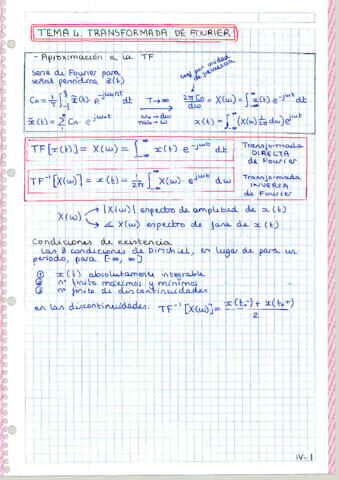 TEMA 4. TRANSFORMADA DE FOURIER
- Aproximación a la TF
Serie de Fourier para
señal periódica x̃(t)
Cn = 1/T ∫ x̃(t) · e^-jωont dt
T→∞
x̃(t) = Σ Cn · e^jωot
ωo → dω
nωo → ω
por unidad de frecuencia
2πCn/dω = X(ω) = ∫_-∞^∞ x(t) e^-jωt dt
x(t) = ∫_-∞^∞ (X(ω) 1/2π dω) e^jωt
TF[x(t)] = X(ω) = ∫_-∞^∞ x(t) e^-jωt dt
Transformada
DIRECTA
de Fourier
TF^-1[X(ω)] = x(t) = 1/2π ∫_-∞^∞ X(ω) · e^jωt dω
Transformada
INVERSA
de Fourier
X(ω) → |X(ω)| espectro de amplitud de x(t)
→ ∡ X(ω) espectro de fase de x(t)
Condiciones de existencia
Las 3 condiciones de Dirichlet, en lugar de para un
periodo, para [-∞, ∞]
① x(t) absolutamente integrable
② nº finito máximos y mínimos
③ nº finito de discontinuidades
en las discontinuidades: TF^-1[X(ω)] = x(to-) + x(to+) / 2
IV - 1